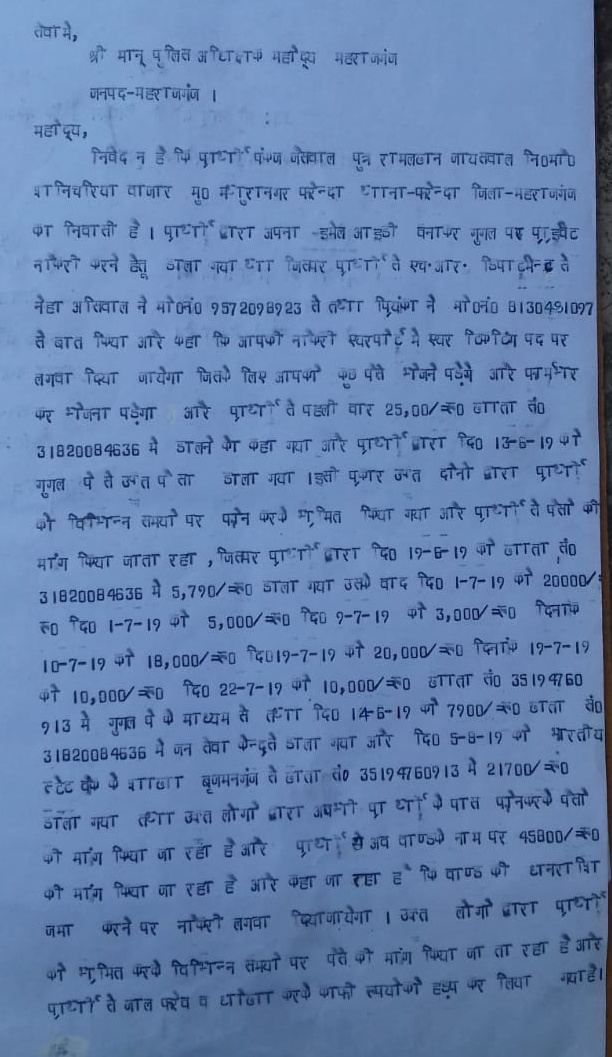 सेवा मे,
श्री मान् पुलिस अधिक्षक महोदय महराजगंज
जनपद-महराजगंज ।
महोदय,
निवेदन है कि प्रार्थी पंकज जैसवाल पुत्र रामलखन जायसवाल नि०मो०
शनिचरिया बाजार मु० मथुरानगर फरेन्दा थाना-फरेन्दा जिला-महराजगंज
का निवासी है । प्रार्थी द्वारा अपना ईमेल आइडी बनाकर गुगल पर प्राइवेट
नौकरी करने हेतू डाला गया था जिसपर प्रार्थी से एच.आर. डिपार्टमेन्ट से
नेहा अग्रवाल ने मो०नं० 9572098923 से तथा प्रियंका ने मो०नं० 8130491097
से बात किया और कहा कि आपको नौकरी एयरपोर्ट मे एयर टिकटिंग पद पर
लगवा दिया जायेगा जिसके लिए आपको कुछ पैसे भेजने पड़ेगे और फार्म भर
कर भेजना पड़ेगा और प्रार्थी से पहली बार 25,00/=रू० खाता सं०
31820084636 मे डालने को कहा गया और प्रार्थी द्वारा दि० 13-6-19 को
गुगल पे से उक्त पैसा डाला गया ।इसी प्रकार उक्त दोनो द्वारा प्रार्थी
को विभिन्न समयो पर फोन करके भ्रमित किया गया और प्रार्थी से पैसो की
मांग किया जाता रहा ,जिसपर प्रार्थी द्वारा दि० 19-6-19 को खाता सं०
31820084636 मे 5,790/=रू० डाला गया उसके बाद दि० 1-7-19 को 20000/=
रू० दि० 1-7-19 को 5,000/=रू० दि० 9-7-19 को 3,000/=रू० दिनांक
10-7-19 को 18,000/=रू० दि०19-7-19 को 20,000/=रू० दिनांक 19-7-19
को 10,000/=रू० दि० 22-7-19 को 10,000/=रू० खाता सं० 35194760
913 मे गुगल पे के माध्यम से तथा दि० 14-6-19 को 7900/=रू० खाता सं०
31820084636 मे जन सेवा केन्द्रसे डाला गया और दि० 5-8-19 को भारतीय
स्टेट बैंक के शाखा बृजमनगंज से खाता सं० 35194760913 मे 21700/=रू०
डाला गया तथा उक्त लोगो द्वारा अभी प्रार्थी के पास फोनकरके पैसो
की मांग किया जा रहा है और प्रार्थी से अब बाण्डके नाम पर 45800/=रू०
की मांग किया जा रहा है और कहा जा रहा है कि बाण्ड की धनराशि
जमा करने पर नौकरी लगवा दियाजायेगा । उक्त लोगो द्वारा प्रार्थी
को भ्रमित करके विभिन्न समयो पर पैसे की मांग किया जा ता रहा है और
प्रार्थी से जाल फरेब व धोखा करके काफी रूपयोको हड़प कर लिया गया है।